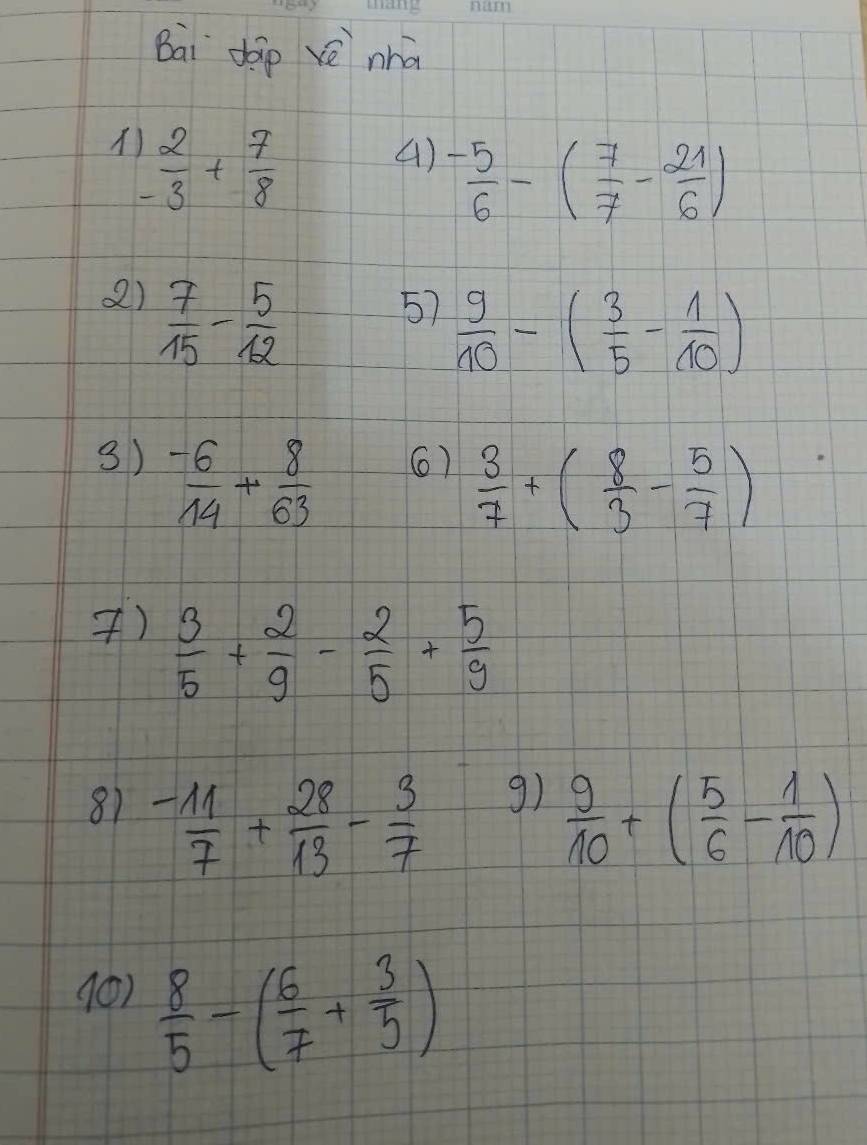 ngày tháng năm
Bài tập về nhà
1) 2/-3 + 7/8
4) -5/6 - (7/7 - 21/6)
2) 7/15 - 5/12
5) 9/10 - (3/5 - 1/10)
3) -6/14 + 8/63
6) 3/7 + (8/3 - 5/7)
7) 3/5 + 2/9 - 2/5 + 5/9
8) -11/7 + 28/13 - 3/7
9) 9/10 + (5/6 - 1/10)
10) 8/5 - (6/7 + 3/5)